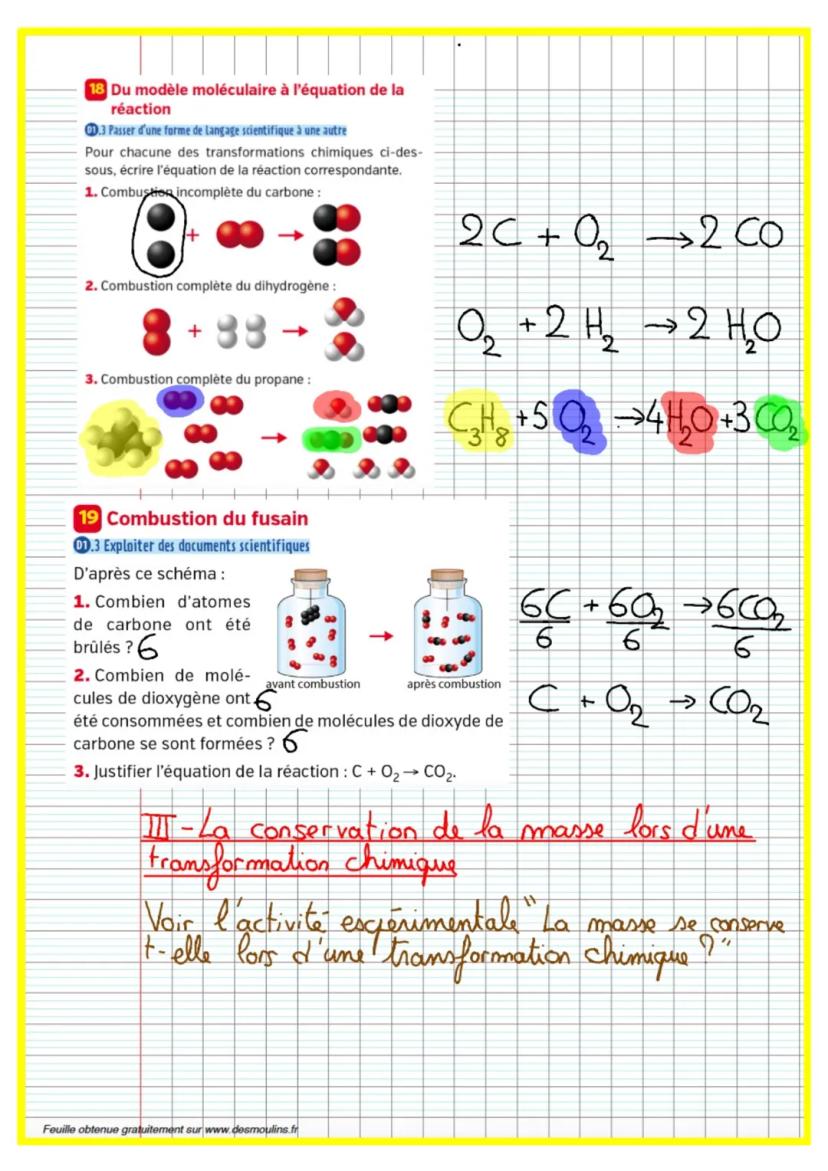 18 Du modèle moléculaire à l'équation de la
réaction
D1.3 Passer d'une forme de langage scientifique à une autre
Pour chacune des transformations chimiques ci-des-
sous, écrire l'équation de la réaction correspondante.
1. Combustion incomplète du carbone :
+ →
2C + O₂ → 2 CO
2. Combustion complète du dihydrogène :
+ →
O₂ + 2 H₂ → 2 H₂O
3. Combustion complète du propane :
→
C₃H₈ + 5 O₂ → 4 H₂O + 3 CO₂
19 Combustion du fusain
D1.3 Exploiter des documents scientifiques
D'après ce schéma :
1. Combien d'atomes
de carbone ont été
brûlés ? 6
2. Combien de molé-
cules de dioxygène ont 6
été consommées et combien de molécules de dioxyde de
carbone se sont formées ? 6
3. Justifier l'équation de la réaction : C + O₂ → CO₂.
→
avant combustion
après combustion
6C + 6O₂ → 6CO₂
6 6 6
C + O₂ → CO₂
III - La conservation de la masse lors d'une
transformation chimique
Voir l'activité expérimentale "La masse se conserve
t-elle lors d'une transformation chimique ?"
Feuille obtenue gratuitement sur www.desmoulins.fr